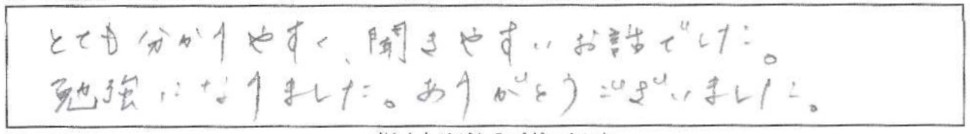 とても分かりやすく、聞きやすいお話でした。
勉強になりました。ありがとうございました。